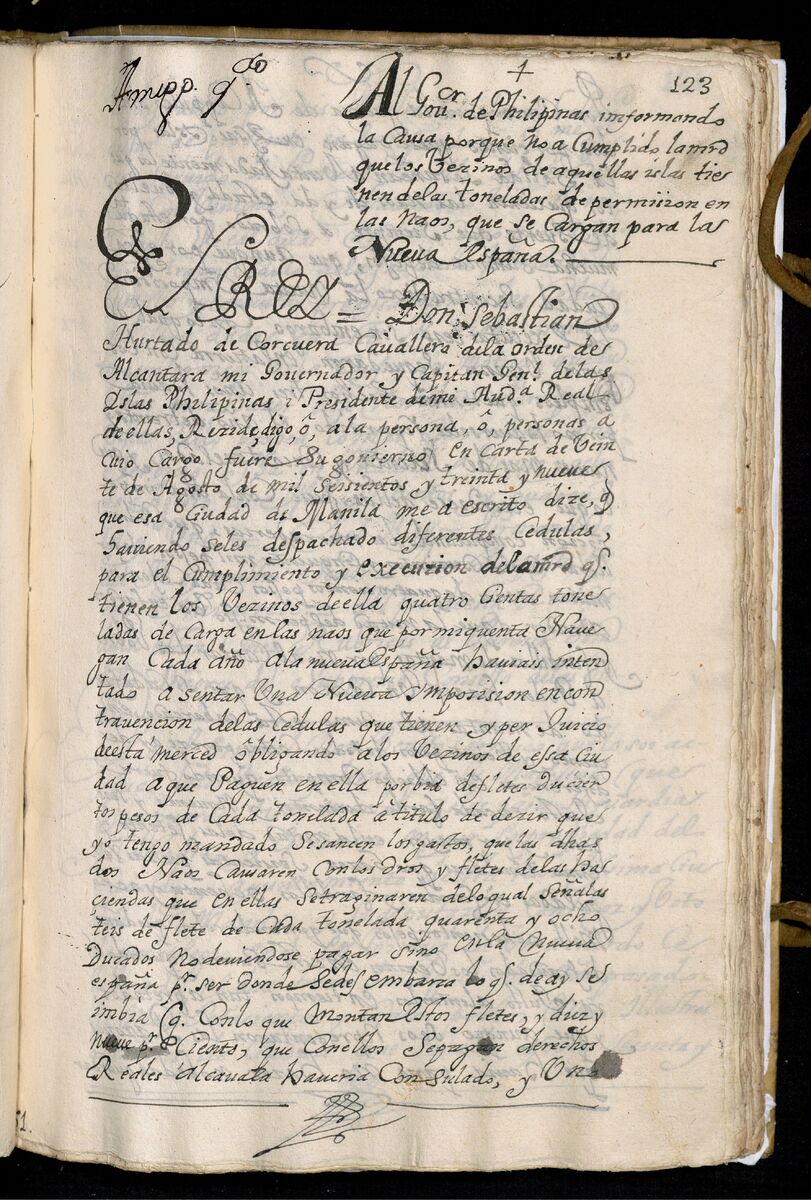 123
Al Gov.or de Philipinas imformando
la Causa porque no a Cumplido lamrd
que los Vezinos de aquellas islas tie
nen delas toneladas de permision en
las Naos, que se Cargan para la
Nueva España.
El REY = Don Sebastian
Hurtado de Corcuera Cavallero dela orden de
Alcantara mi Governador y Capitan Gen.l delas
Yslas Philipinas i Presidente demi Aud.a Real
de ellas, Rezide, digo, ô, ala persona, ô, personas a
cuio Cargo fuere Su govierno en Carta de Vein
te de Agosto de mil Seisientos y treinta y nueve
que esa Ciudad de Manila me a escrito dize, q
haviendo seles despachado diferentes Cedulas,
para el Cumplimiento y execuzion delamrd q.
tienen los Vezinos de ella quatro Cientas tone
ladas de Carga en las naos que por miquenta Nave
gan Cada año ala nueva España haviais inten
tado asentar Una Nueva imposision encon
travencion delas Cedulas que tienen y per Juicio
deesta merced obligando alos Vezinos de essa Ciu
dad a que Paguen en ella por bia defletes ducien
tos pesos de Cada tonelada a titulo de dezir que
yo tengo mandado Sesaneen los gastos, que las dhas
dos Naos Causaren Conlos dros y fletes delas ha
çiendas que en ellas Setraginaren delo qual Señalas
teis de flete de Cada tonelada quarenta y ocho
Ducados no deviendose pagar sino en la nueva
españa p.r ser donde Sedesembarca lo q. de ay se
imbia q. Conlo que montan estos fletes, y diez y
nueve p.r Ciento, que Conellos Sepagan derechos
Reales alcavala haveria Consulado, y Una